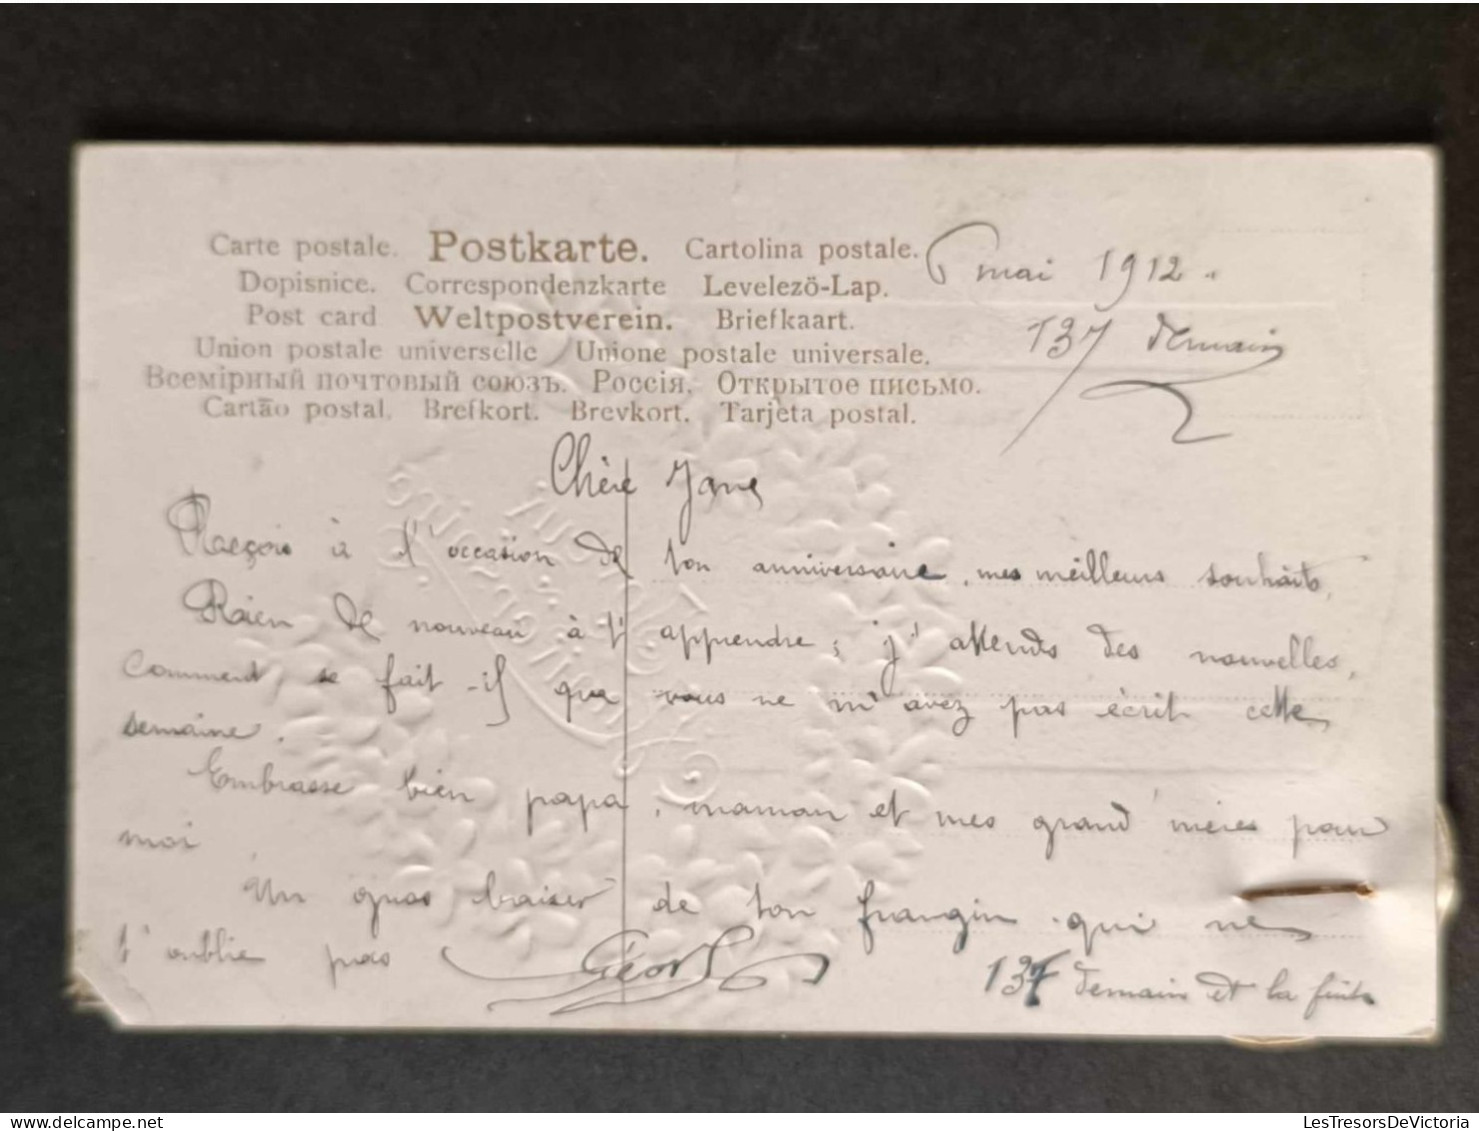 Carte postale. Postkarte. Cartolina postale.
Dopisnice. Correspondenzkarte Levelezö-Lap.
Post card Weltpostverein. Briefkaart.
Union postale universelle Unione postale universale.
Всемірный почтовый союзъ. Россія. Открытое письмо.
Cartão postal. Brefkort. Brevkort. Tarjeta postal.
6 mai 1912.
137 demain
Chère Jane
Reçois à l'occasion de ton anniversaire, mes meilleurs souhaits.
Rien de nouveau à t'apprendre; j'attends des nouvelles,
comment se fait-il que vous ne m'avez pas écrit cette
semaine.
Embrasse bien papa, maman et mes grand'mères pour
moi
Un gros baiser de ton frangin qui ne
t'oublie pas
137 demain et la fuite
LesTresorsDeVictoria.delcampe.net